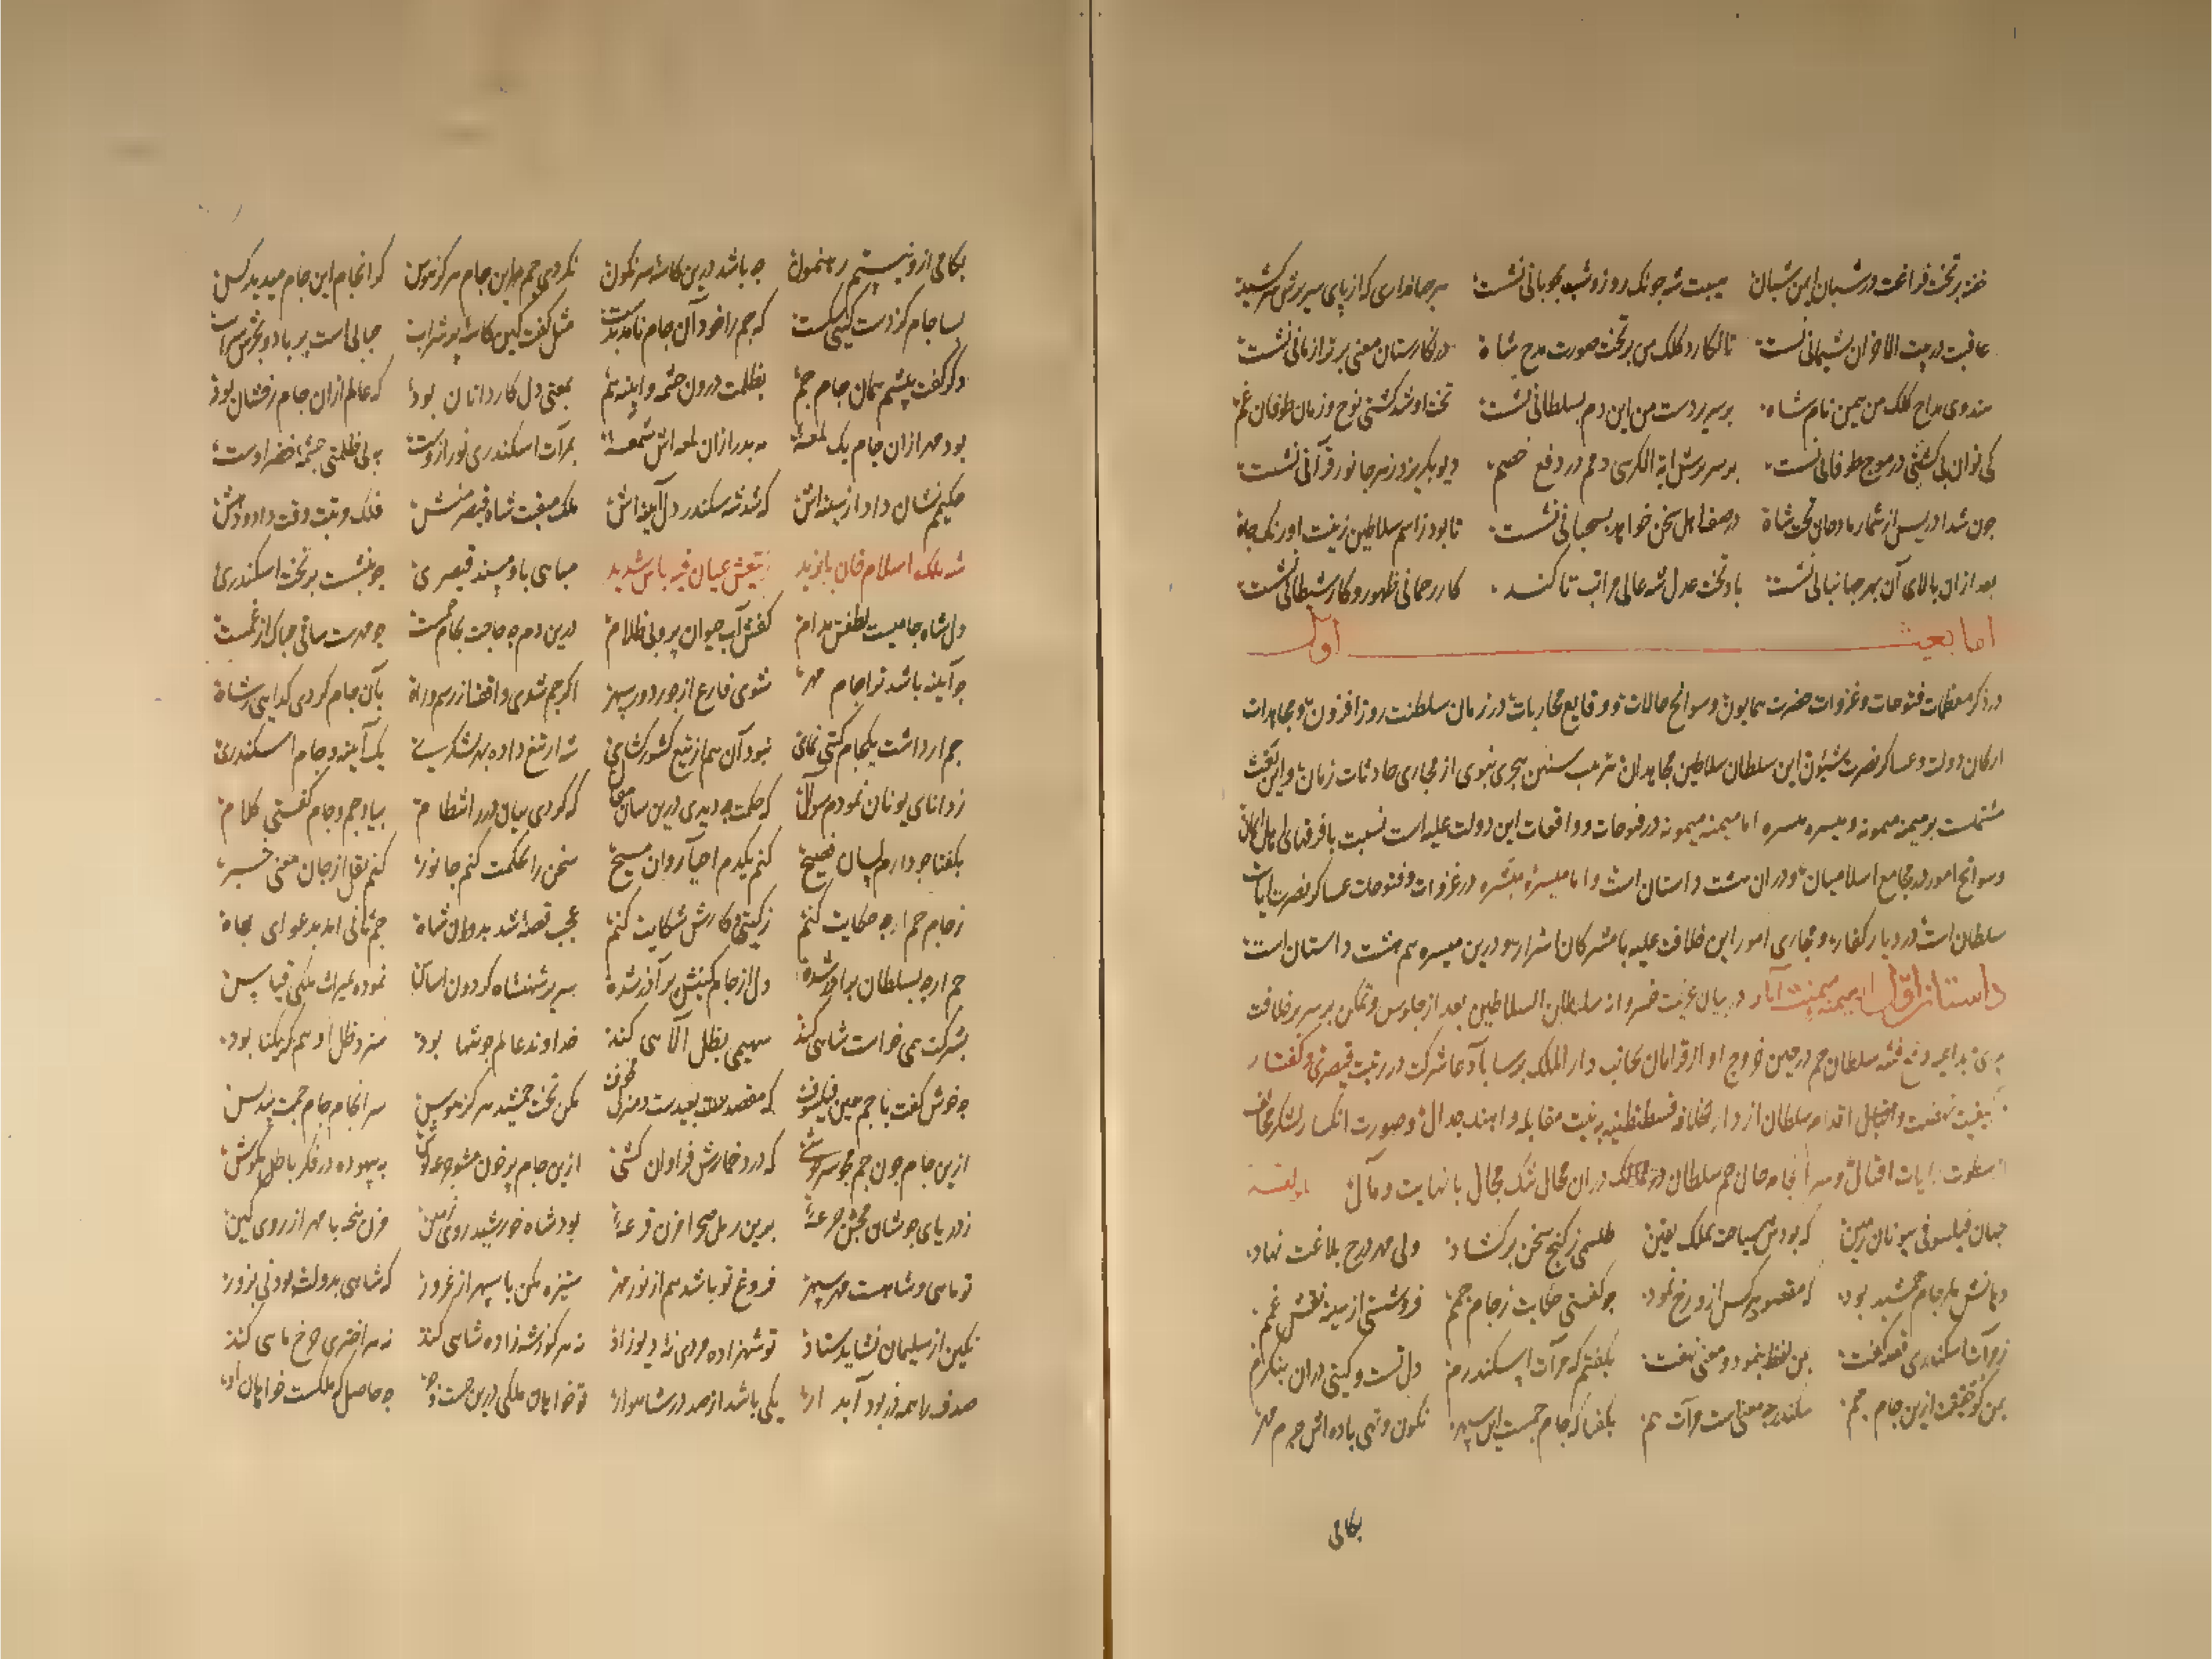 خفته بر تخت فراغت در شبان ایمن شبان هیبت شه چونک روز و شب بچوبانی نشست هر جهانداری که از پای سریرش سر کشید
عاقبت در بیت الاحزان پشیمانی نشست تا نگارد کلک من بر تخت صورت مدح شاه در نگارستان معنی برتر از مانی نشست
من دوی مداح کلک من بیمن نام شاه بر سریر دست من این دم بسلطانی نشست تخت او شد کشتی نوح و زمان طوفان غم
کی توان بی کشتی در موج طوفانی نشست بر سر عرشش آیة الکرسی دمم در دفع خصم دیو بگریزد ز هر جا نور قرآنی نشست
چون شد ادریس از شمار مادحان تخت شاه در صف اهل سخن خواهد بسحبانی نشست تا بود ز اسم سلاطین زینت اورنک جاه
بعد ازان بالای آن بهر جهانبانی نشست باد تخت عدل شه عالی مراتب تا کند کار رحمانی ظهور و کار شیطانی نشست
اما بعث اول
در ذکر معظمات فتوحات و غزوات حضرت همایون و سوانح حالات و وقایع محاربات در زمان سلطنت روز افزون و مجاهدات
ارکان دولت و عساکر نصرت شیون این سلطان سلاطین مجاهدان بترتیب سنین هجری نبوی از مجاری حادثات زمان و این بعث
مشتملست بر میمنه میمونه و میسره میسره اما میمنه میمونه در فتوحات و واقعات این دولت علیه است نسبت با فرقهای اهل ایمان
و سوانح امور در مجامع اسلامیان و دران هشت داستان است و اما میسره مبشره در غزوات و فتوحات عساکر نصرت ایات
سلطان است در دیار کفار و مجاری امور این خلافت علیه با مشرکان اشرار و درین میسره هم هشت داستان است
داستان اول از میمنه میمنت آثار در بیان عزیمت خسروانه سلطان السلاطین بعد از جلوس و تمکن بر سریر خلافت
دفع فتنه سلطان جم در حین خروج او از قرامان بجانب دار الملک بروسا بادعا شرکت در رتبت قیصری و گفتار
کیفیت نهضت و اقبال اقدام سلطان از دار الخلافه قسطنطنیه به نیت مقابله و آهنک جدال و صورت انکسار لشکر مخالف
از سطوت رایات اقبال و سرانجام حال جم سلطان در ممالک دران محال تنک مجال با نهایت و مآل
جهان فیلسوفی بیونان زمین که بودش سیاحت بملک یقین طلسمی ز گنج سخن بر گشاد ولی مهر درج بلاغت نهاد
دهانش بهر جام جمشید بود که مقصود هر کس ازو رخ نمود چو گفتی حکایت ز جام جم فروشستی از سینه نقش غم
ز مرآت اسکندری قصه گفت بمن لفظ بنمود و معنی نهفت بگفتم که مرآت اسکندرم دل تست و گیتی دران بنگرم
بمن گو حقیقت ازین جام جم سکندر چه معنی است مرآت هم بگفتا که جام جمست این سپهر نگون و تهی باده اش جرم مهر
بکامی
بکامی ازو نیستم رهنمون چه باشد درین کاسه سرنگون نکردی جم این جام هرگز هوس گر انجام این جام میدید کس
بسا جام کز دست گیتی شکست که جم را خود آن جام نامد بدست مثل گفت کین کاسه پر شراب حبابی است پر باد و بحرش سراب
دگر گفت پیشم همان جام جم بظلمت درون چشمه و آینه هم بمعنی دل کاردانان بود که عالم ازان جام رخشان بود
بود مهر ازان جام یک لمعه مه بدر ازان لمعه اش شمعه بمرآت اسکندری نور ازوست به بی ظلمتی چشمه خضر اوست
حکیمم نشان داد از سینه اش که شد شه سکندر دل آینه اش ملک منقبت شاه قیصر منش فلک رتبت وقت داود وش
شه ملک اسلام خان بایزید بتیغش عیان فیه باس شدید مباهی باو مسند قیصری چو بنشست بر تخت اسکندری
دل شاه جامیست لطفش مدام کفش آب حیوان پر و بی ظلام درین دم چه حاجت بجام جمست چو مهرست ساقی چه باک از غمست
چو آینه باشد ترا جام مهر شوی فارغ از جور دور سپهر اگر جم شوی واقف از رسم و راه بآن جام گردی گدایی ز شاه
جم ار داشت یک جام گیتی نمای نبود آن هم از تیغ کشور گشای شه از تیغ داده بهر لشکری یک آینه و جام اسکندری
ز دانای یونان نمودم سوال که حکمت چه دیدی درین سان مقال که کردی میان در انتظام بیاد جم و جام گفتی کلام
بگفتا چو دارم لسان فصیح کنم یکدم احیا روان مسیح سخن را بحکمت کنم جانور کنم نقل از جان معنی خبر
ز جام جم ار چه حکایت کنم ز گیتی و کارش شکایت کنم عجب قصه شد بدوران شاه جم ثانی آمد بدعوای جاه
جم ار چه بسلطان برادر شده دل از جام کینش پر آذر شده سریر شهنشاه گردون اساس نموده بمیراث ملکی قیاس
بشرکت همی خواست شاهی کند سهیمی بظل الهی کند خداوند عالم چو تنها بود سزد ظل او هم که یکتا بود
چه خوش گفت با جم مهین فیلسوف که مقصد بعیدست و منزل مخوف مکن تخت جمشید هرگز هوس سرانجام جام جمت پند بس
ازین جام چون جم مجو سرخوشی که درد خمارش فراوان کشی ازین جام پر خون مشو جرعه نوش به بیهوده در فکر باطل مکوش
ز دریای جوشان مجو جرعه برین رمل صحرا مزن قرعه بود شاه خورشید روی زمین مزن پنجه با مهر از روی کین
تو ماهی و شاهست مهر سپهر فروغ تو باشد هم از نور مهر ستیزه مکن با سپهر از غرور که شاهی بدولت بود نی بزور
نگین از سلیمان نشاید ستاد تو شهزاده مردی نه دیو زاد نه هر کو ز شه زاده شاهی کند نه هر اختری چرخ ماهی کند
صدف را همه در بود آبدار یکی باشد از صد در شاهوار تو خواهان ملکی درین جست وجو چه حاصل که ملکست خواهان او